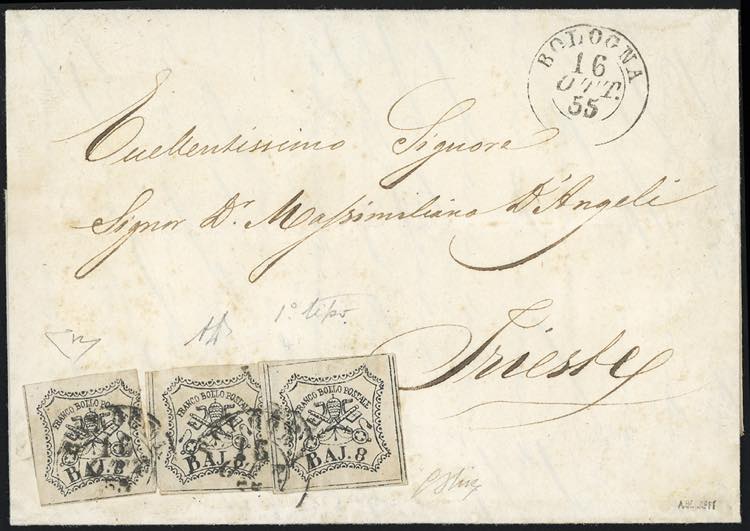 BOLOGNA
16
OTT.
55
Eccellentissimo Signore
Signor Dr. Massimiliano D'Angeli
Trieste
1º tipo.
FRANCO BOLLO POSTALE
BAJ. 8
FRANCO BOLLO POSTALE
BAJ. 8
FRANCO BOLLO POSTALE
BAJ. 8